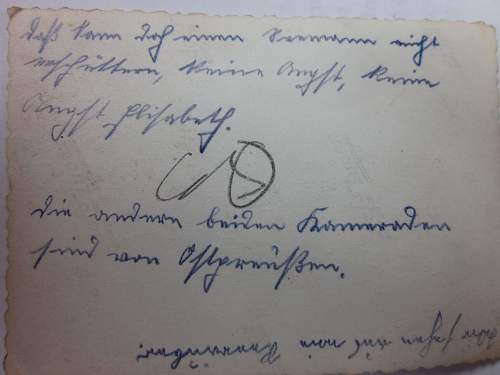 daß kann doch einen Seemann nicht
erschüttern, keine Angst, keine
Angst Elisabeth.
die andern beiden Kameraden
sind von Ostpreußen.